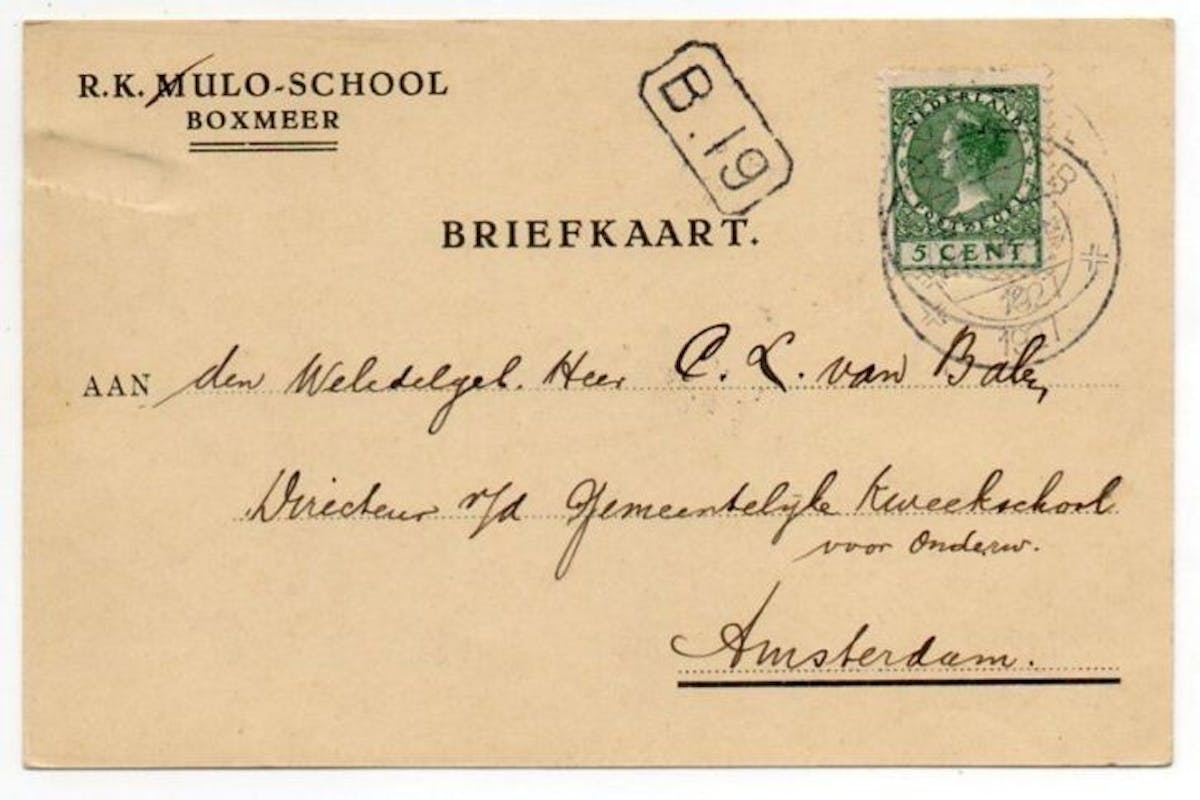 R.K. MULO-SCHOOL
BOXMEER
B.19
NEDERLAND
POSTZEGEL
5 CENT
1927
BRIEFKAART.
AAN den Weledelgeb. Heer C. L. van Balen
Directeur v/d Gemeentelijke Kweekschool
voor Onderw.
Amsterdam.